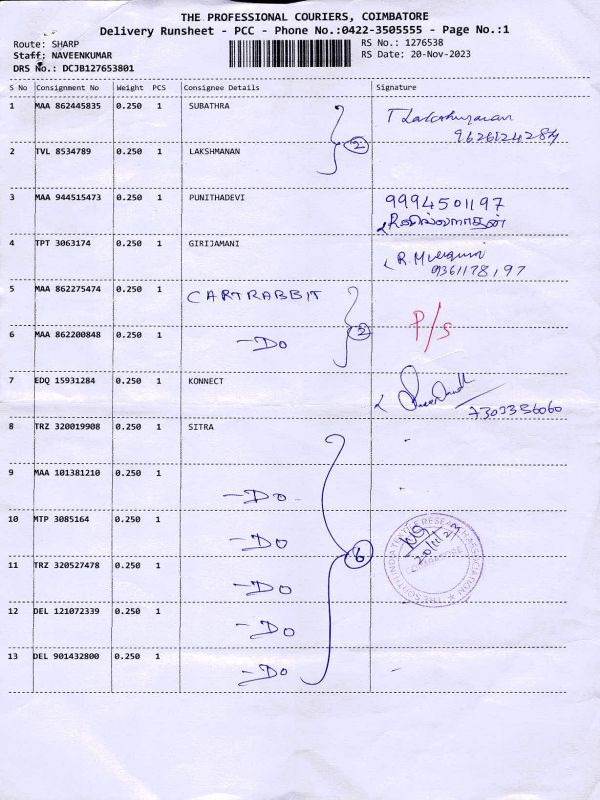 THE PROFESSIONAL COURIERS, COIMBATORE
Delivery Runsheet - PCC - Phone No.:0422-3505555 - Page No.:1
Route: SHARP RS No.: 1276538
Staff: NAVEENKUMAR RS Date: 20-Nov-2023
DRS No.: DCJB127653801
S No Consignment No Weight PCS Consignee Details Signature
1 MAA 862445835 0.250 1 SUBATHRA T Lakshmanan
9626124284
2 TVL 8534789 0.250 1 LAKSHMANAN 2
3 MAA 944515473 0.250 1 PUNITHADEVI 9994501197
4 TPT 3063174 0.250 1 GIRIJAMANI R.
9361178197
5 MAA 862275474 0.250 1 CARTRABBIT P/S
6 MAA 862200848 0.250 1 -DO 2
7 EDQ 15931284 0.250 1 KONNECT
7303356060
8 TRZ 320019908 0.250 1 SITRA
9 MAA 101381210 0.250 1 -DO-
10 MTP 3085164 0.250 1 -DO
20/11/23
11 TRZ 320527478 0.250 1 -DO 6
12 DEL 121072339 0.250 1 -DO
13 DEL 901432800 0.250 1 -DO
THE SOUTH INDIA TEXTILE RESEARCH ASSOCIATION
COIMBATORE